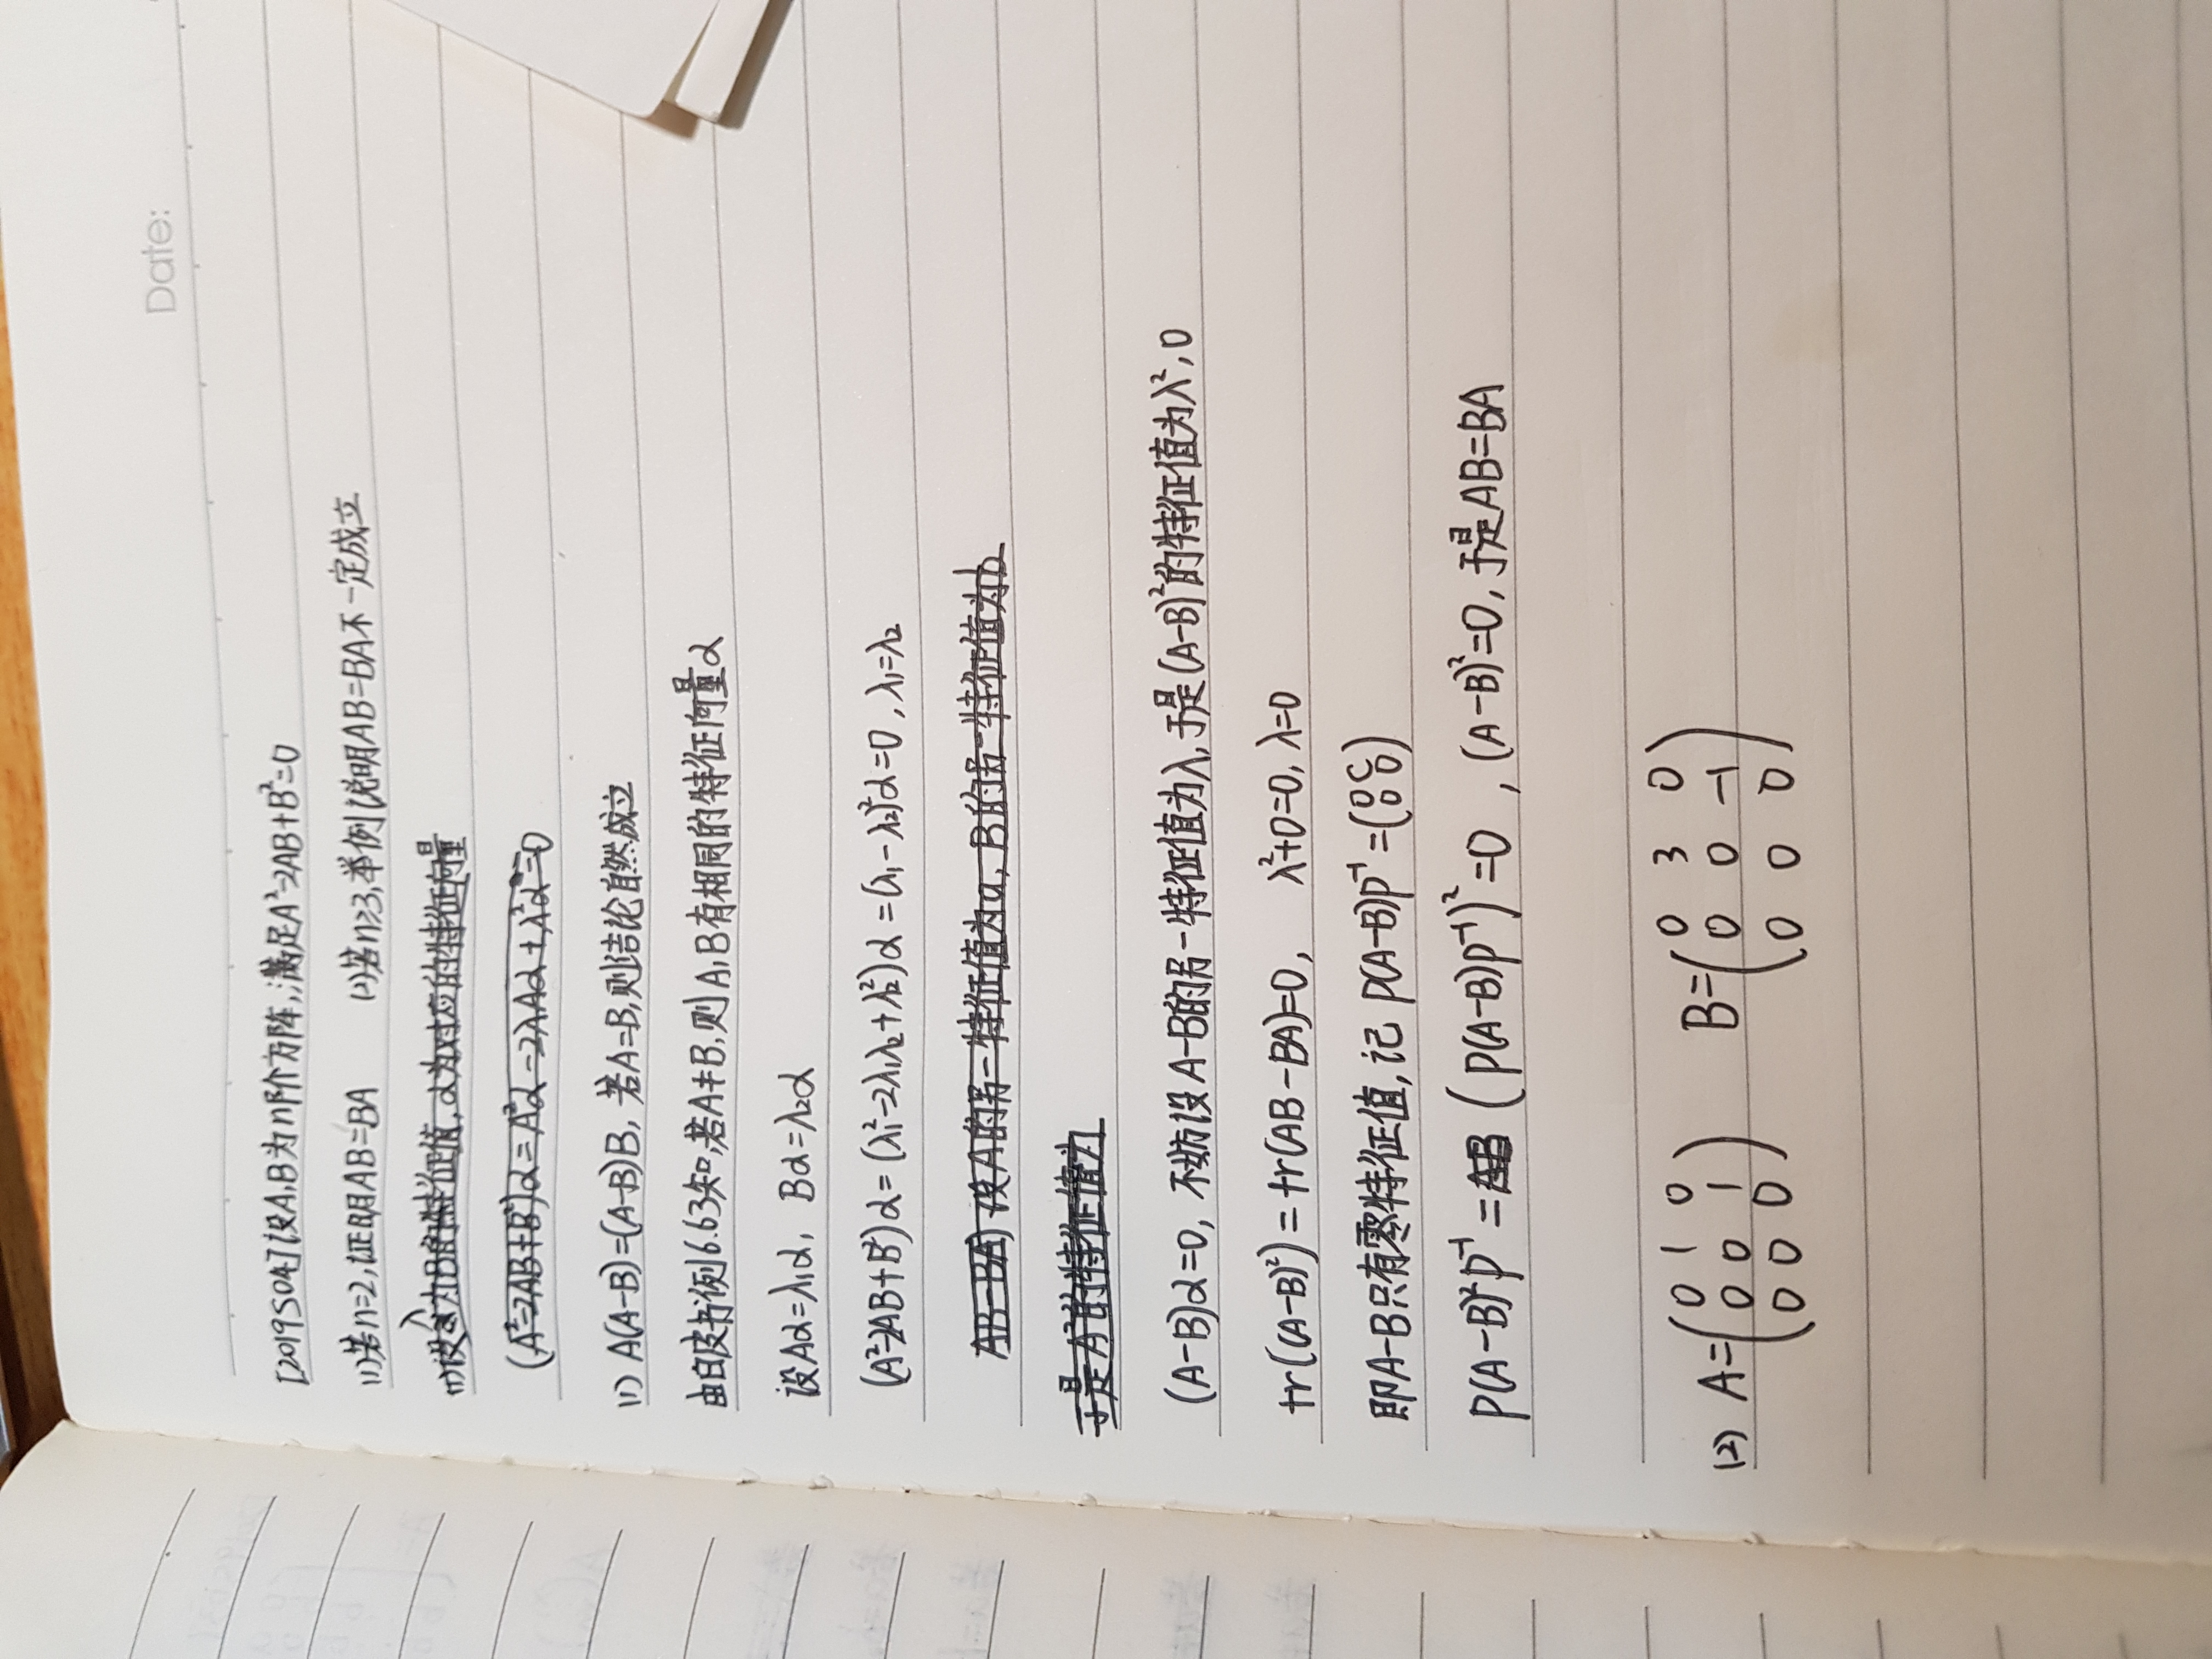 Date:
[2019S04] 设A,B为n阶方阵,满足A²-2AB+B²=0
(1)若n=2,证明AB=BA (2)若n≥3,举例说明AB=BA不一定成立
(1)设λ为B的特征值,α为对应的特征向量
(A²-2AB+B²)α=A²α-2λAα+λ²α=0
(1) A(A-B)=(A-B)B, 若A=B,则结论自然成立
由白皮书例6.63知,若A≠B,则A,B有相同的特征向量α
设Aα=λ₁α, Bα=λ₂α
(A²-2AB+B²)α=(λ₁²-2λ₁λ₂+λ₂²)α=(λ₁-λ₂)²α=0,λ₁=λ₂
AB-BA) 设A的另一特征值为a,B的另一特征值为b
于是A²的特征值为
(A-B)α=0, 不妨设A-B的另一特征值为λ,于是(A-B)²的特征值为λ²,0
tr((A-B)²)=tr(AB-BA)=0, λ²+0=0,λ=0
即A-B只有零特征值,记 P(A-B)P⁻¹=(0 C
0 0)
P(A-B)²P⁻¹= (P(A-B)P⁻¹)²=0 ,(A-B)²=0,于是AB=BA
(2) A=(0 1 0
0 0 1
0 0 0) B=(0 3 0
0 0 -1
0 0 0)